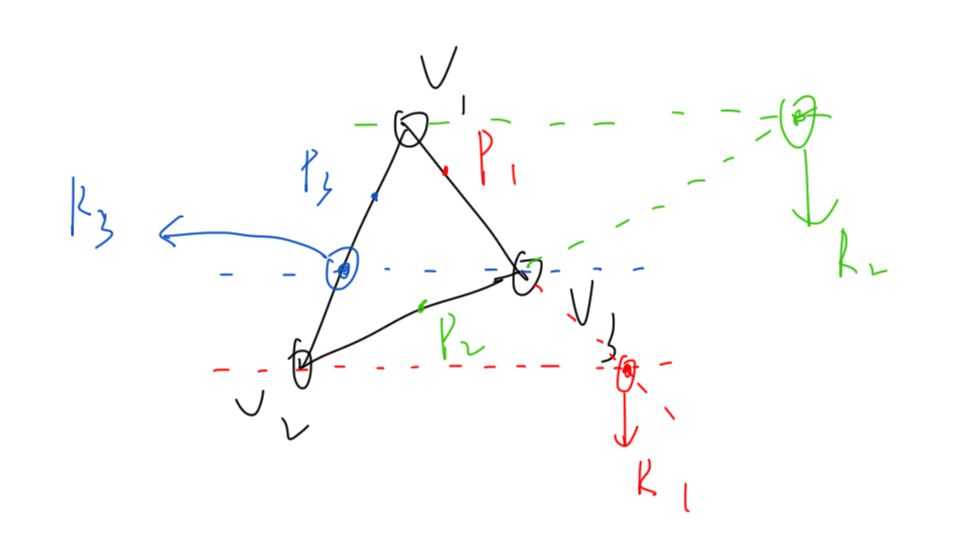 V1
P1
P3
R3
R2
V3
P2
V2
R1